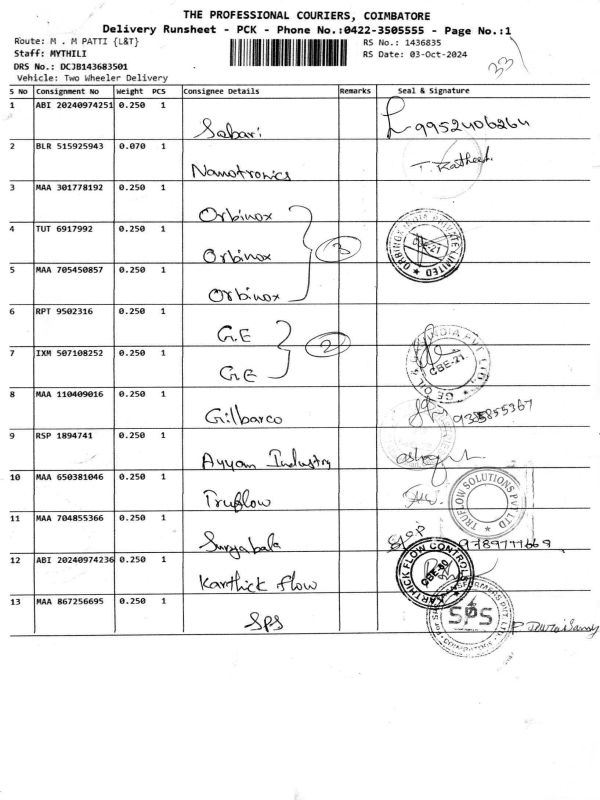 THE PROFESSIONAL COURIERS, COIMBATORE
Delivery Runsheet - PCK - Phone No.:0422-3505555 - Page No.:1
Route: M . M PATTI {L&T} RS No.: 1436835
Staff: MYTHILI RS Date: 03-Oct-2024
DRS No.: DCJB143683501
Vehicle: Two Wheeler Delivery
33
S No Consignment No Weight PCS Consignee Details Remarks Seal & Signature
1 ABI 20240974251 0.250 1 Sabari 9952406264
2 BLR 515925943 0.070 1 Nanotronics T. Katheesh
3 MAA 301778192 0.250 1 Orbinox
4 TUT 6917992 0.250 1 Orbinox 3 ORBINOX INDIA PRIVATE LIMITED CBE-21
5 MAA 705450857 0.250 1 Orbinox
6 RPT 9502316 0.250 1 G.E
7 IXM 507108252 0.250 1 G.E 2 GE OIL & INDIA PVT LTD CBE-21
8 MAA 110409016 0.250 1 Gilbarco 9385855367
9 RSP 1894741 0.250 1 Ayyan Industry
10 MAA 650381046 0.250 1 Truflow TRUFLOW SOLUTIONS PVT LTD
11 MAA 704855366 0.250 1 Suryabala 9789777669
12 ABI 20240974236 0.250 1 Karthick flow KARTHICK FLOW CONTROLS
13 MAA 867256695 0.250 1 SPS SPS COIMBATORE